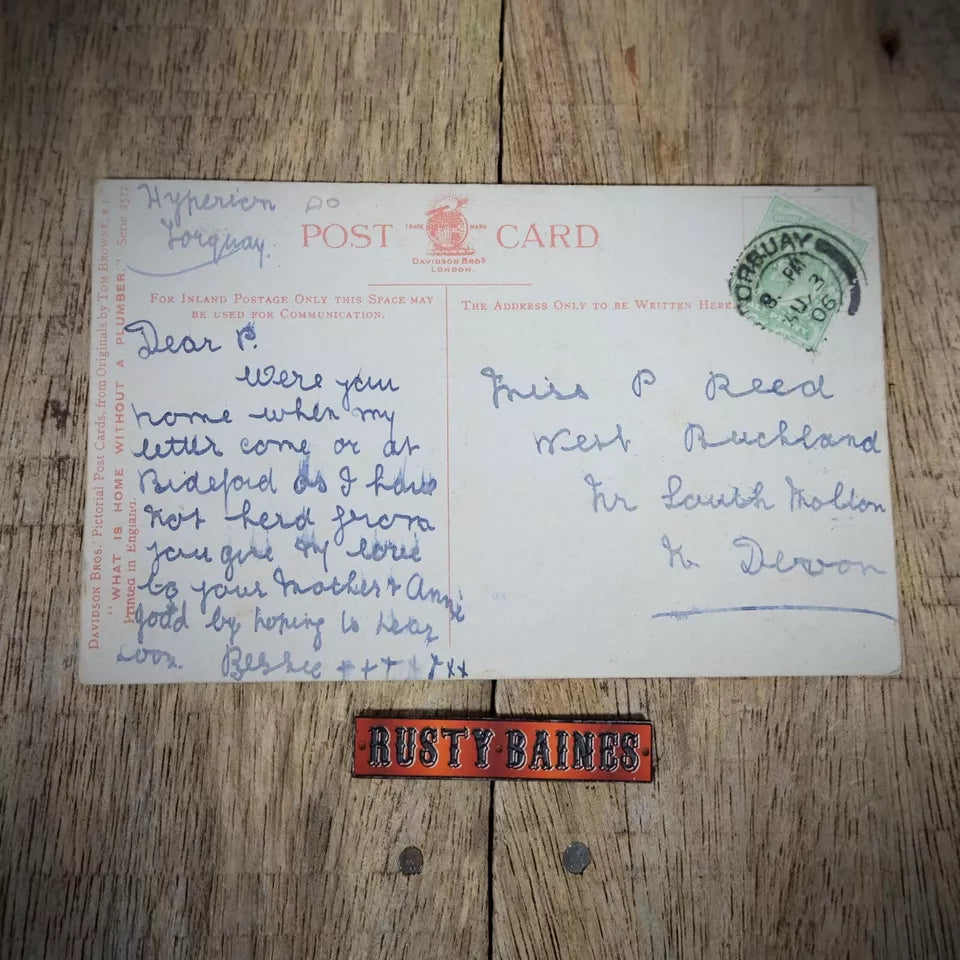 Hyperion
Torquay.
POST CARD
TRADE MARK
DAVIDSON BROS
LONDON.
FOR INLAND POSTAGE ONLY THIS SPACE MAY
BE USED FOR COMMUNICATION.
THE ADDRESS ONLY TO BE WRITTEN HERE
TORQUAY
8 PM
06
DAVIDSON BROS.' Pictorial Post Cards, from Originals by TOM BROWNE, R.I. Serie 2577.
"WHAT IS HOME WITHOUT A PLUMBER."
Printed in England.
Dear P.
Were you
home when my
letter come or at
Bideford as I have
not herd from
you give my love
to your Mother & Annie
good by hoping to hear
soon. Bessie
Miss P Reed
West Buckland
Nr South Molton
N Devon
RUSTY BAINES